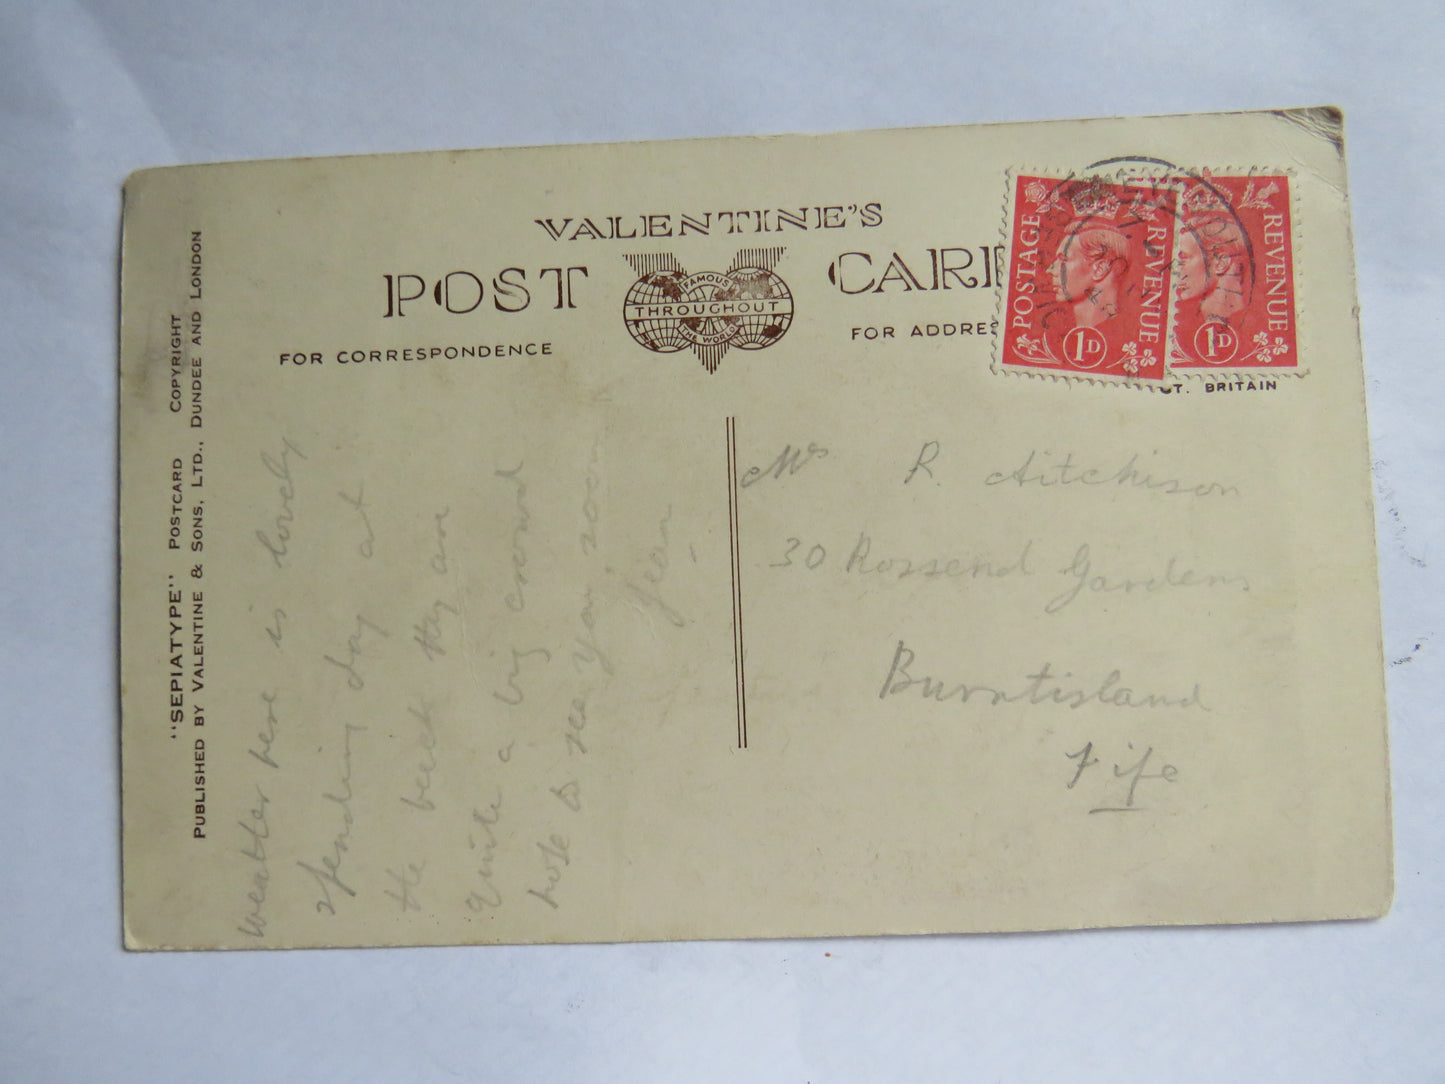 "SEPIATYPE" POSTCARD COPYRIGHT
PUBLISHED BY VALENTINE & SONS, LTD., DUNDEE AND LONDON
VALENTINE'S
POST CAR
FAMOUS
THROUGHOUT
THE WORLD
FOR CORRESPONDENCE
FOR ADDRES
GT. BRITAIN
POSTAGE REVENUE
1D
REVENUE
1D
weather here is lovely
spending day at
the beach they are
quite a big crowd
hope to see you soon
Jean
Mrs R. Aitchison
30 Rossend Gardens
Burntisland
Fife